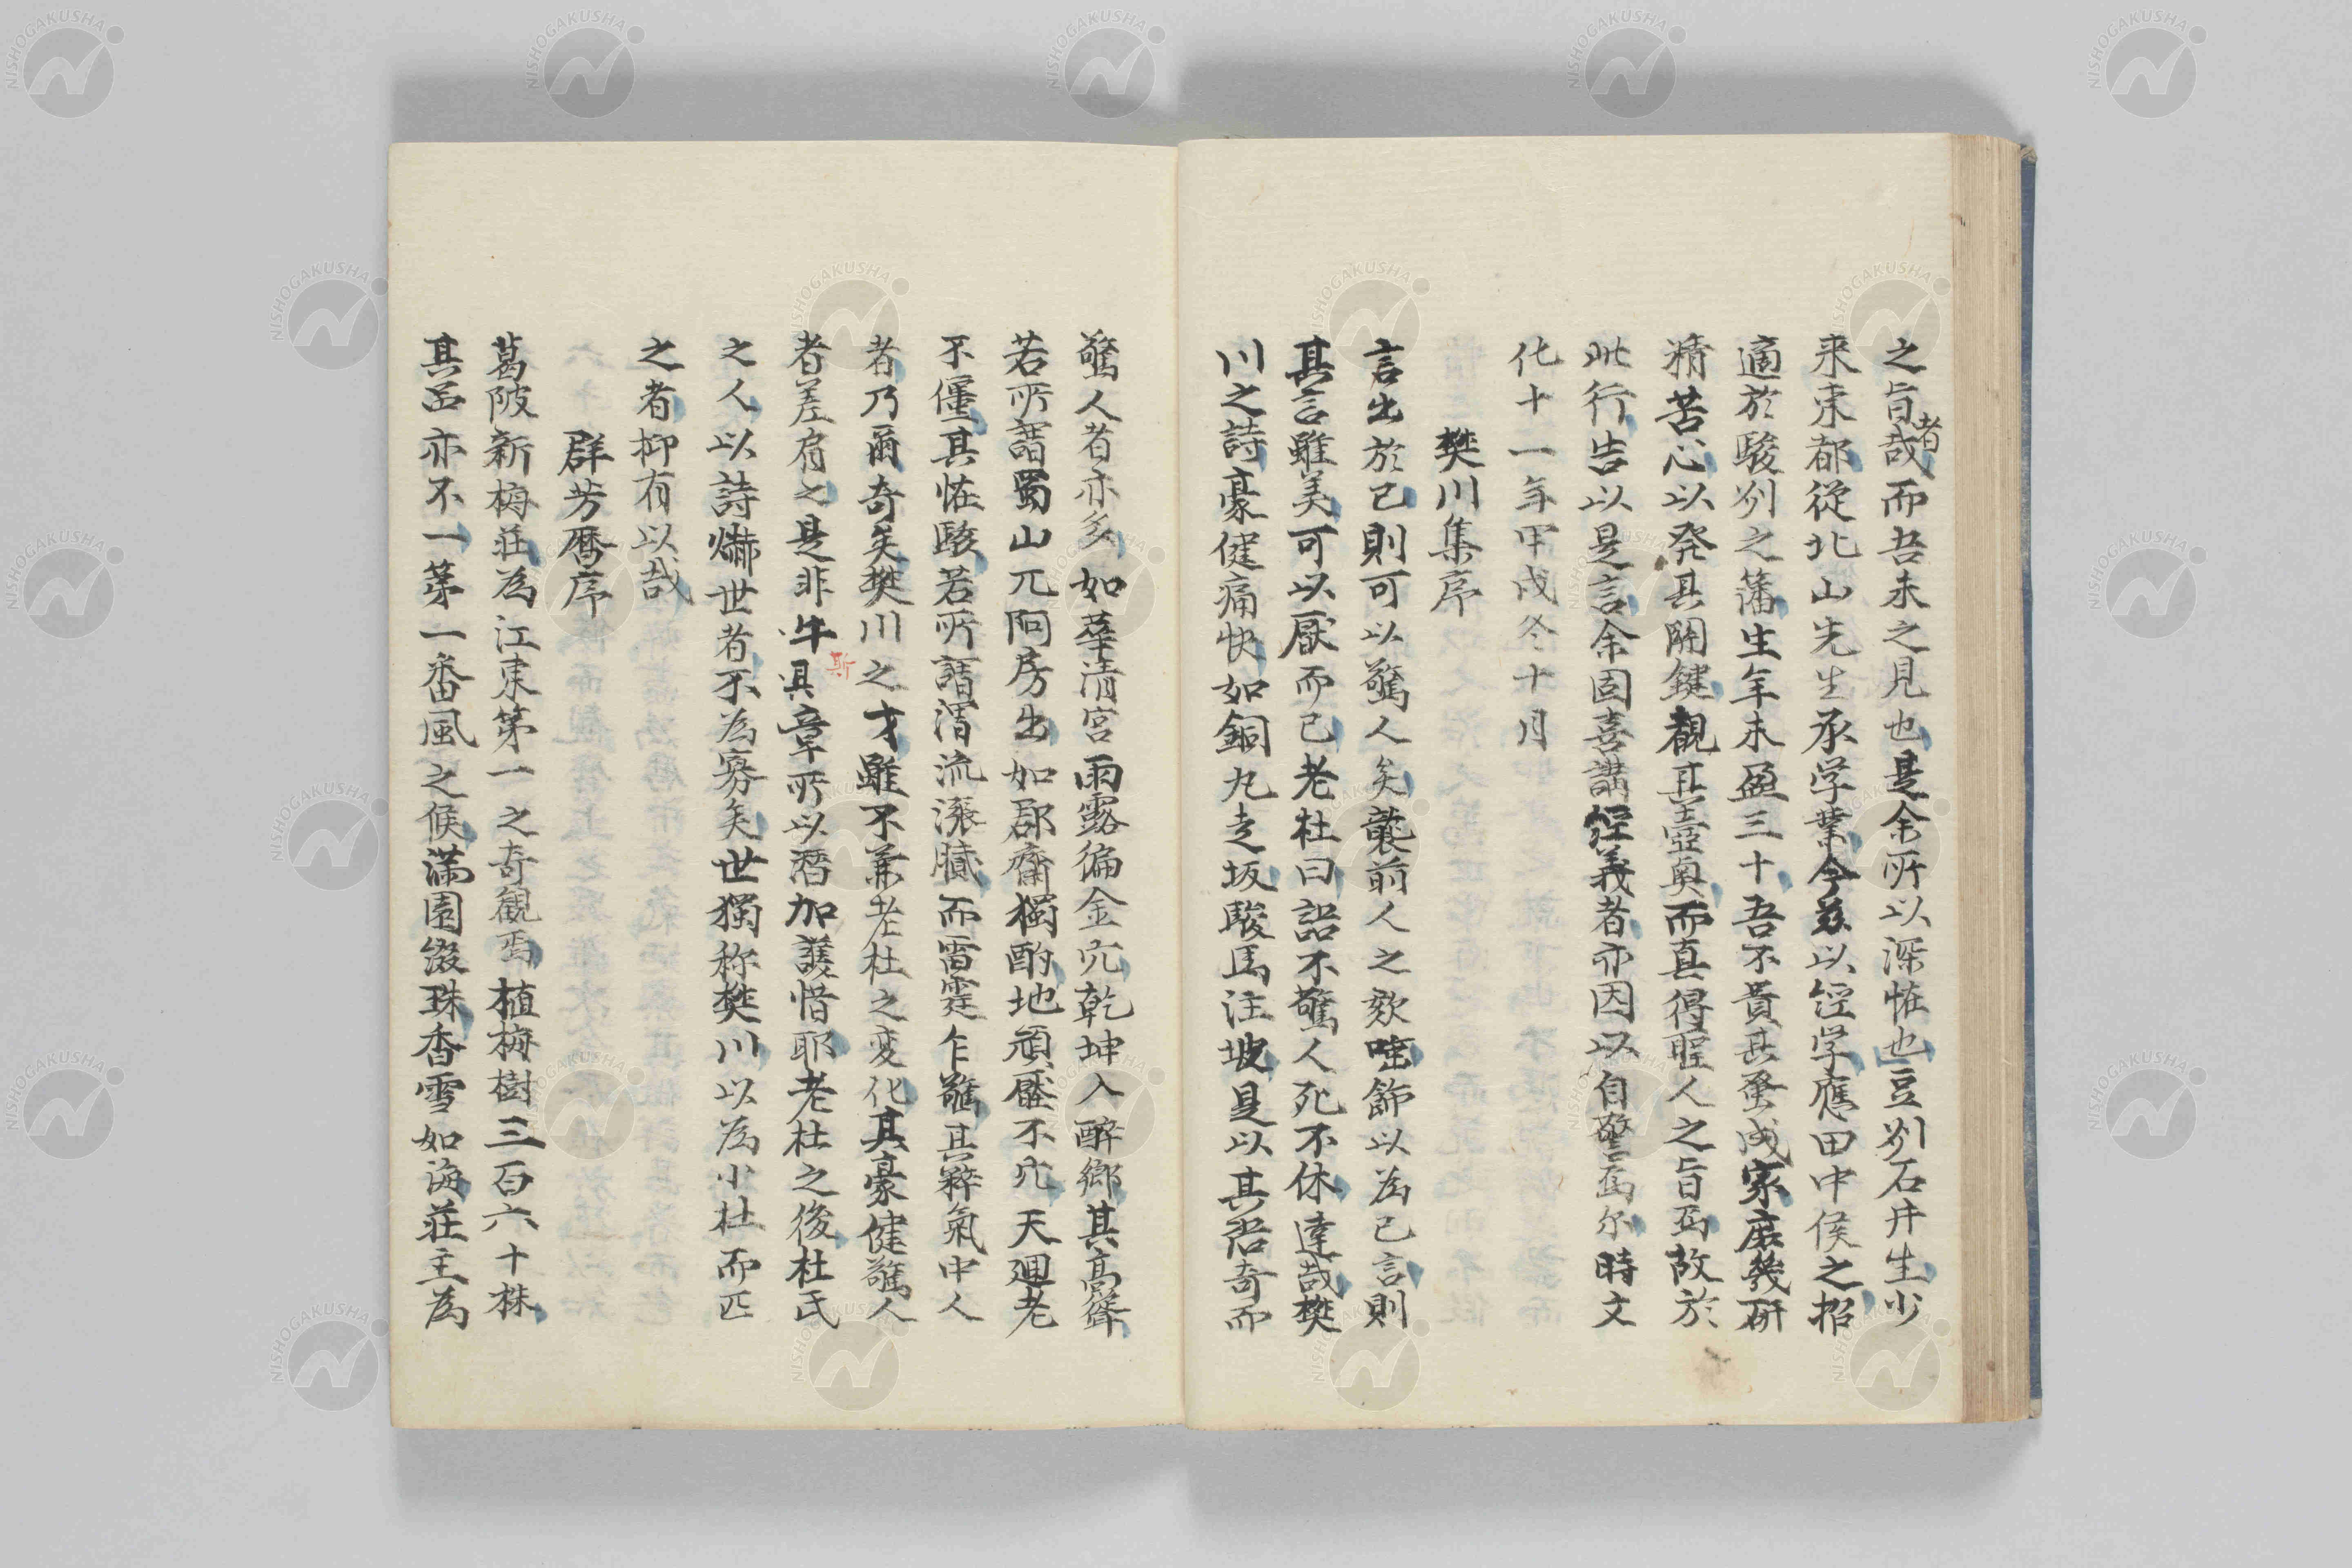 之旨哉者而吾未之見也是余所以深恠也豆州石井生少
来東都従北山先生承学業今茲以経学応田中侯之招
適於駿州之藩生年未盈三十吾不貴其蚤成家庶幾研
精苦心以発其関鍵観其壺奥而真得聖人之旨焉故於
此行告以是言余固喜講経義者亦因以自警焉尓時文
化十一年甲戌冬十月
樊川集序
言出於己則可以驚人矣襲前人之欬唾飾以為己言則
其言雖美可以厭而已老杜曰語不驚人死不休達哉樊
川之詩豪健痛快如銅丸走坂駿馬注坡是以其語奇而
驚人者亦多如華清宮雨露偏金穴乾坤入酔郷其高聳
若所謂蜀山兀阿房出如郡齋獨酌地頑壓不穴天廻老
不僵其恠駭若所謂渭流漲膩而雷霆乍驚其粹氣中人
者乃爾奇矣樊川之才雖不兼老杜之変化其豪健驚人
者差肩之是非牛斯具章所以潛加護惜耶老杜之後杜氏
之人以詩爀世者不為寡矣世獨称樊川以為小杜而匹
之者抑有以哉
群芳暦序
葛陂新梅荘為江東第一之奇観焉植梅樹三百六十株
其品亦不一第一番風之候満園綴珠香雪如海荘主為